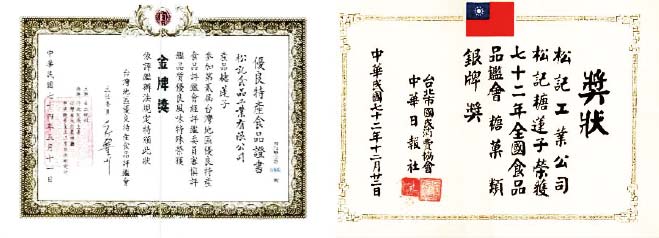 優良特產食品證書
松記食品工業有限公司
產品糖蓮子
參加第貳屆台灣地區優良特產
食品評鑑會經評鑑委員審慎評
鑑品質優良風味特殊榮獲
金牌獎
依評鑑辦法規定特頒此狀
台灣地區優良特產食品評鑑會
主任委員
中華民國七十四年五月十一日
獎狀
松記工業公司
松記糖蓮子榮獲
七十二年全國食品
品鑑會糖菓類
銀牌獎
台北市國民消費協會
中華日報社
中華民國七十二年十二月廿二日